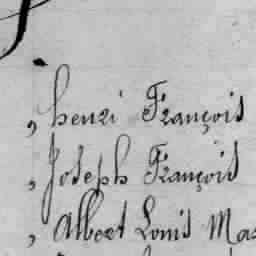 , henri François
, Joseph François
, Albert Louis Mas